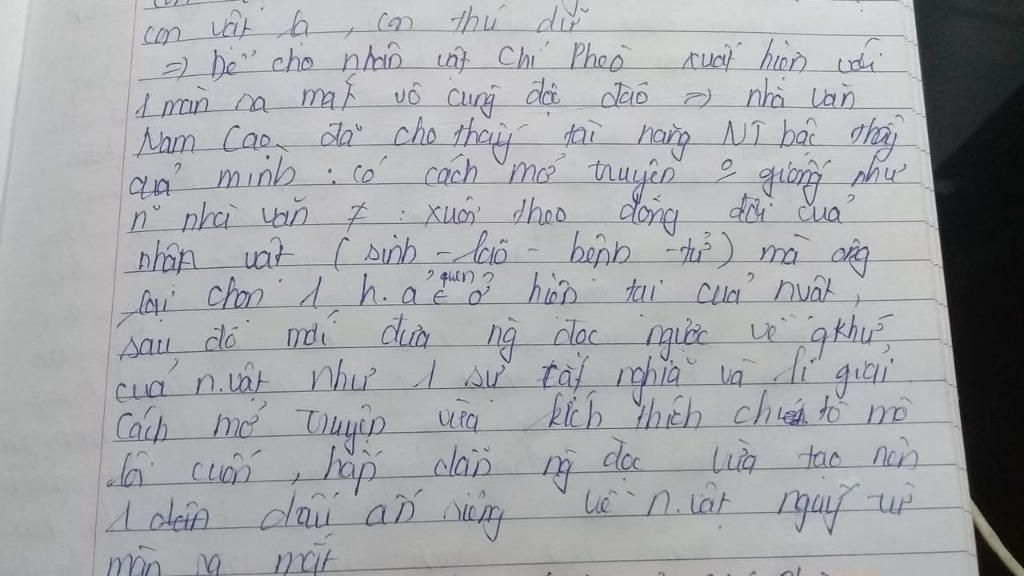 con vật lạ, con thú dữ
=> Để cho nhân vật Chí Phèo xuất hiện với
1 màn ra mắt vô cùng độc đáo => nhà văn
Nam Cao đã cho thấy tài năng NT bậc thầy
của mình : có cách mở truyện giống như
n~ nhà văn ≠ : xuôi theo dòng đời của
nhân vật (sinh - lão - bệnh - tử) mà ông
lại chọn 1 h.a quen ở hiện tại của nvật,
sau đó mới đưa ng đọc ngược về qkhứ
của n.vật như 1 sự cắt nghĩa và lí giải.
Cách mở truyện vừa kích thích tò mò
lôi cuốn, hấp dẫn ng đọc vừa tạo nên
1 dấu ấn riêng về n.vật ngay từ
màn ra mắt